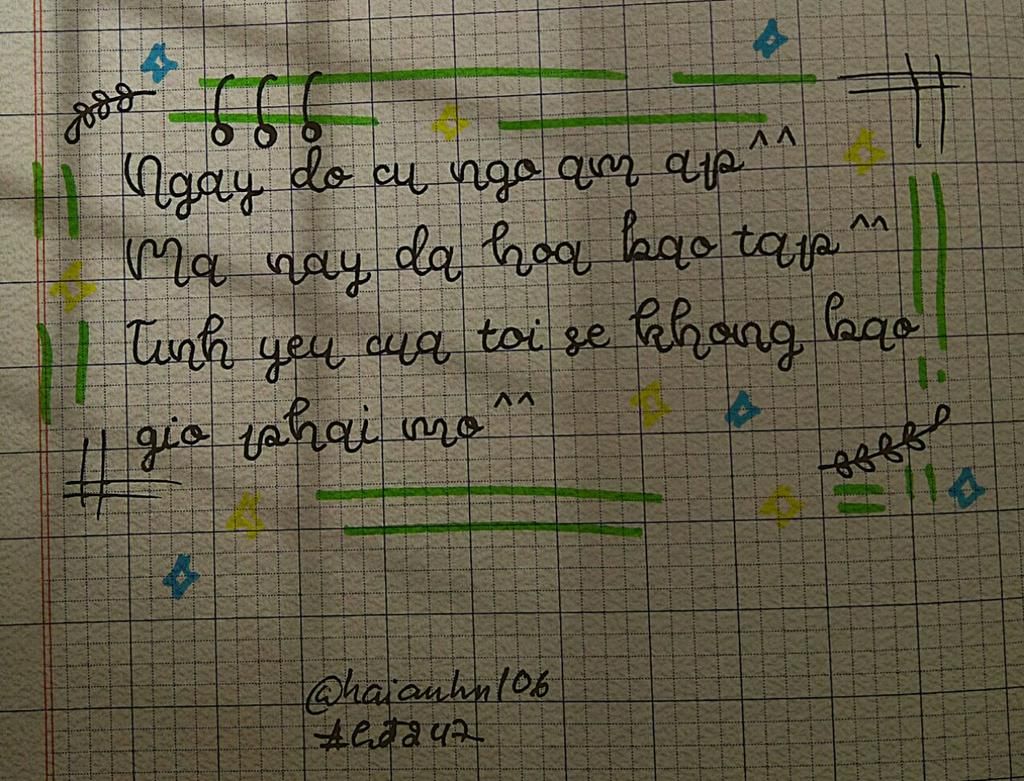 Ngay do cu ngo am ap^^
Ma nay da hoa bao tap^^
Tinh yeu cua toi se khong bao
gio phai mo^^
@haianhn106